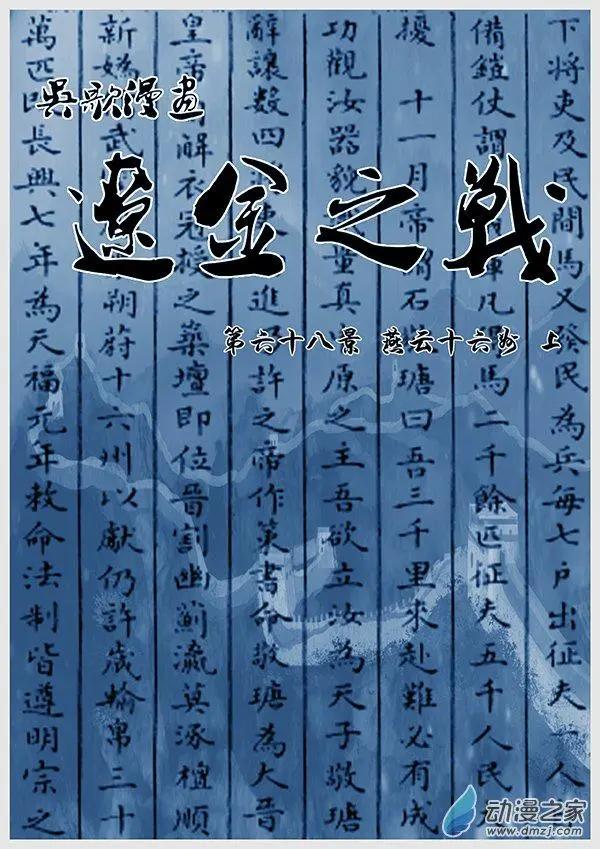 吳歌漫畫
遼金之戰
第六十八景 燕云十六州 上
下將吏及民間馬又發民為兵每七戶出征夫一人
備鎧仗謂軍凡馬二千餘匹征夫五千人民
擾 十一月帝謂石瑭曰吾三千里來赴難必有成
功觀汝器貌量真原之主吾欲立汝為天子敬瑭
辭讓數四將吏進許之帝作策書命敬瑭為大晉
皇帝解衣冠授之築壇即位晉割幽薊瀛莫涿檀順
新媯武朔蔚十六州以獻仍許歲輸帛三十
萬匹長興七年為天福元年敕命法制皆遵明宗之
动漫之家
www.dmzj.com